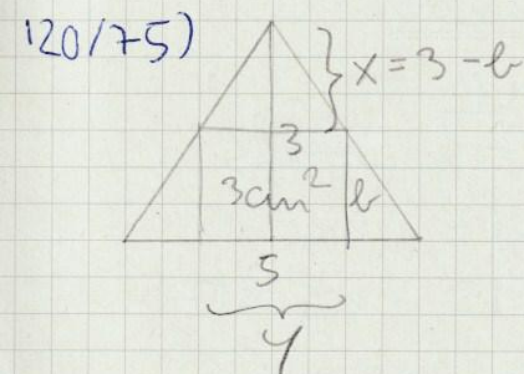 120/75)
x = 3 - b
3
3cm² b
5
y